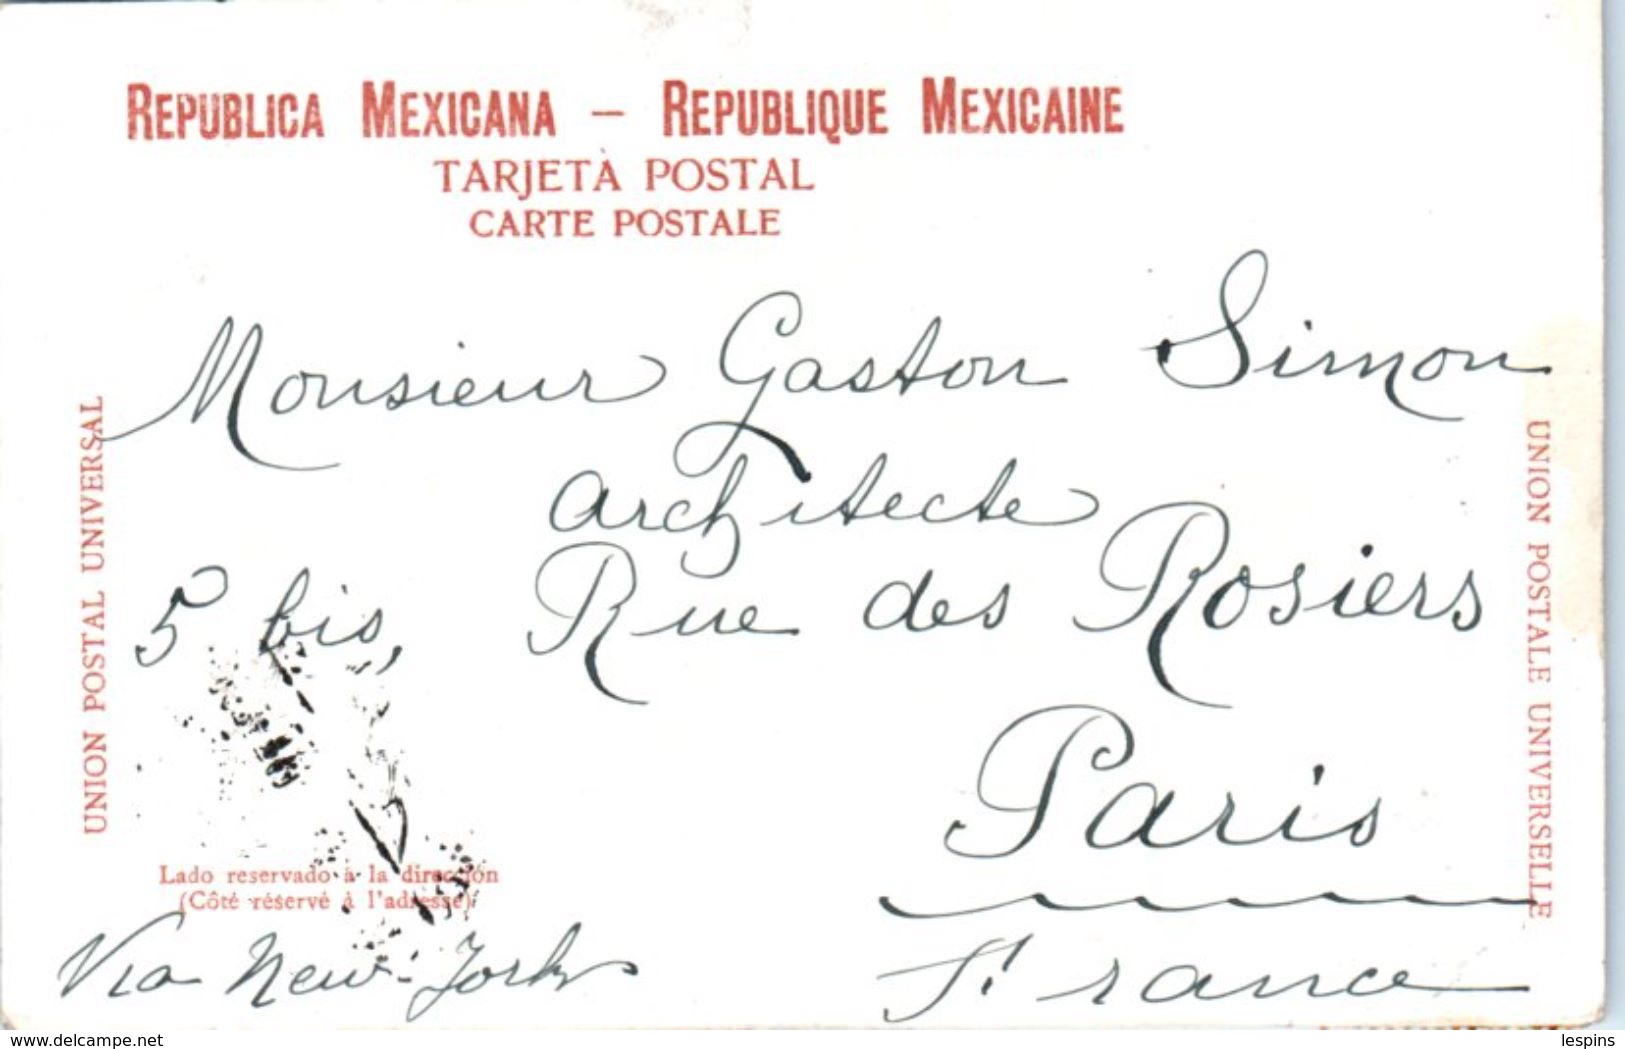 REPUBLICA MEXICANA — REPUBLIQUE MEXICAINE
TARJETA POSTAL
CARTE POSTALE
UNION POSTAL UNIVERSAL
UNION POSTALE UNIVERSELLE
Monsieur Gaston Simon
architecte
5 bis, Rue des Rosiers
Paris
France
Lado reservado à la dirección
(Côté réservé à l'adresse)
Via New-York
www.delcampe.net
lespins